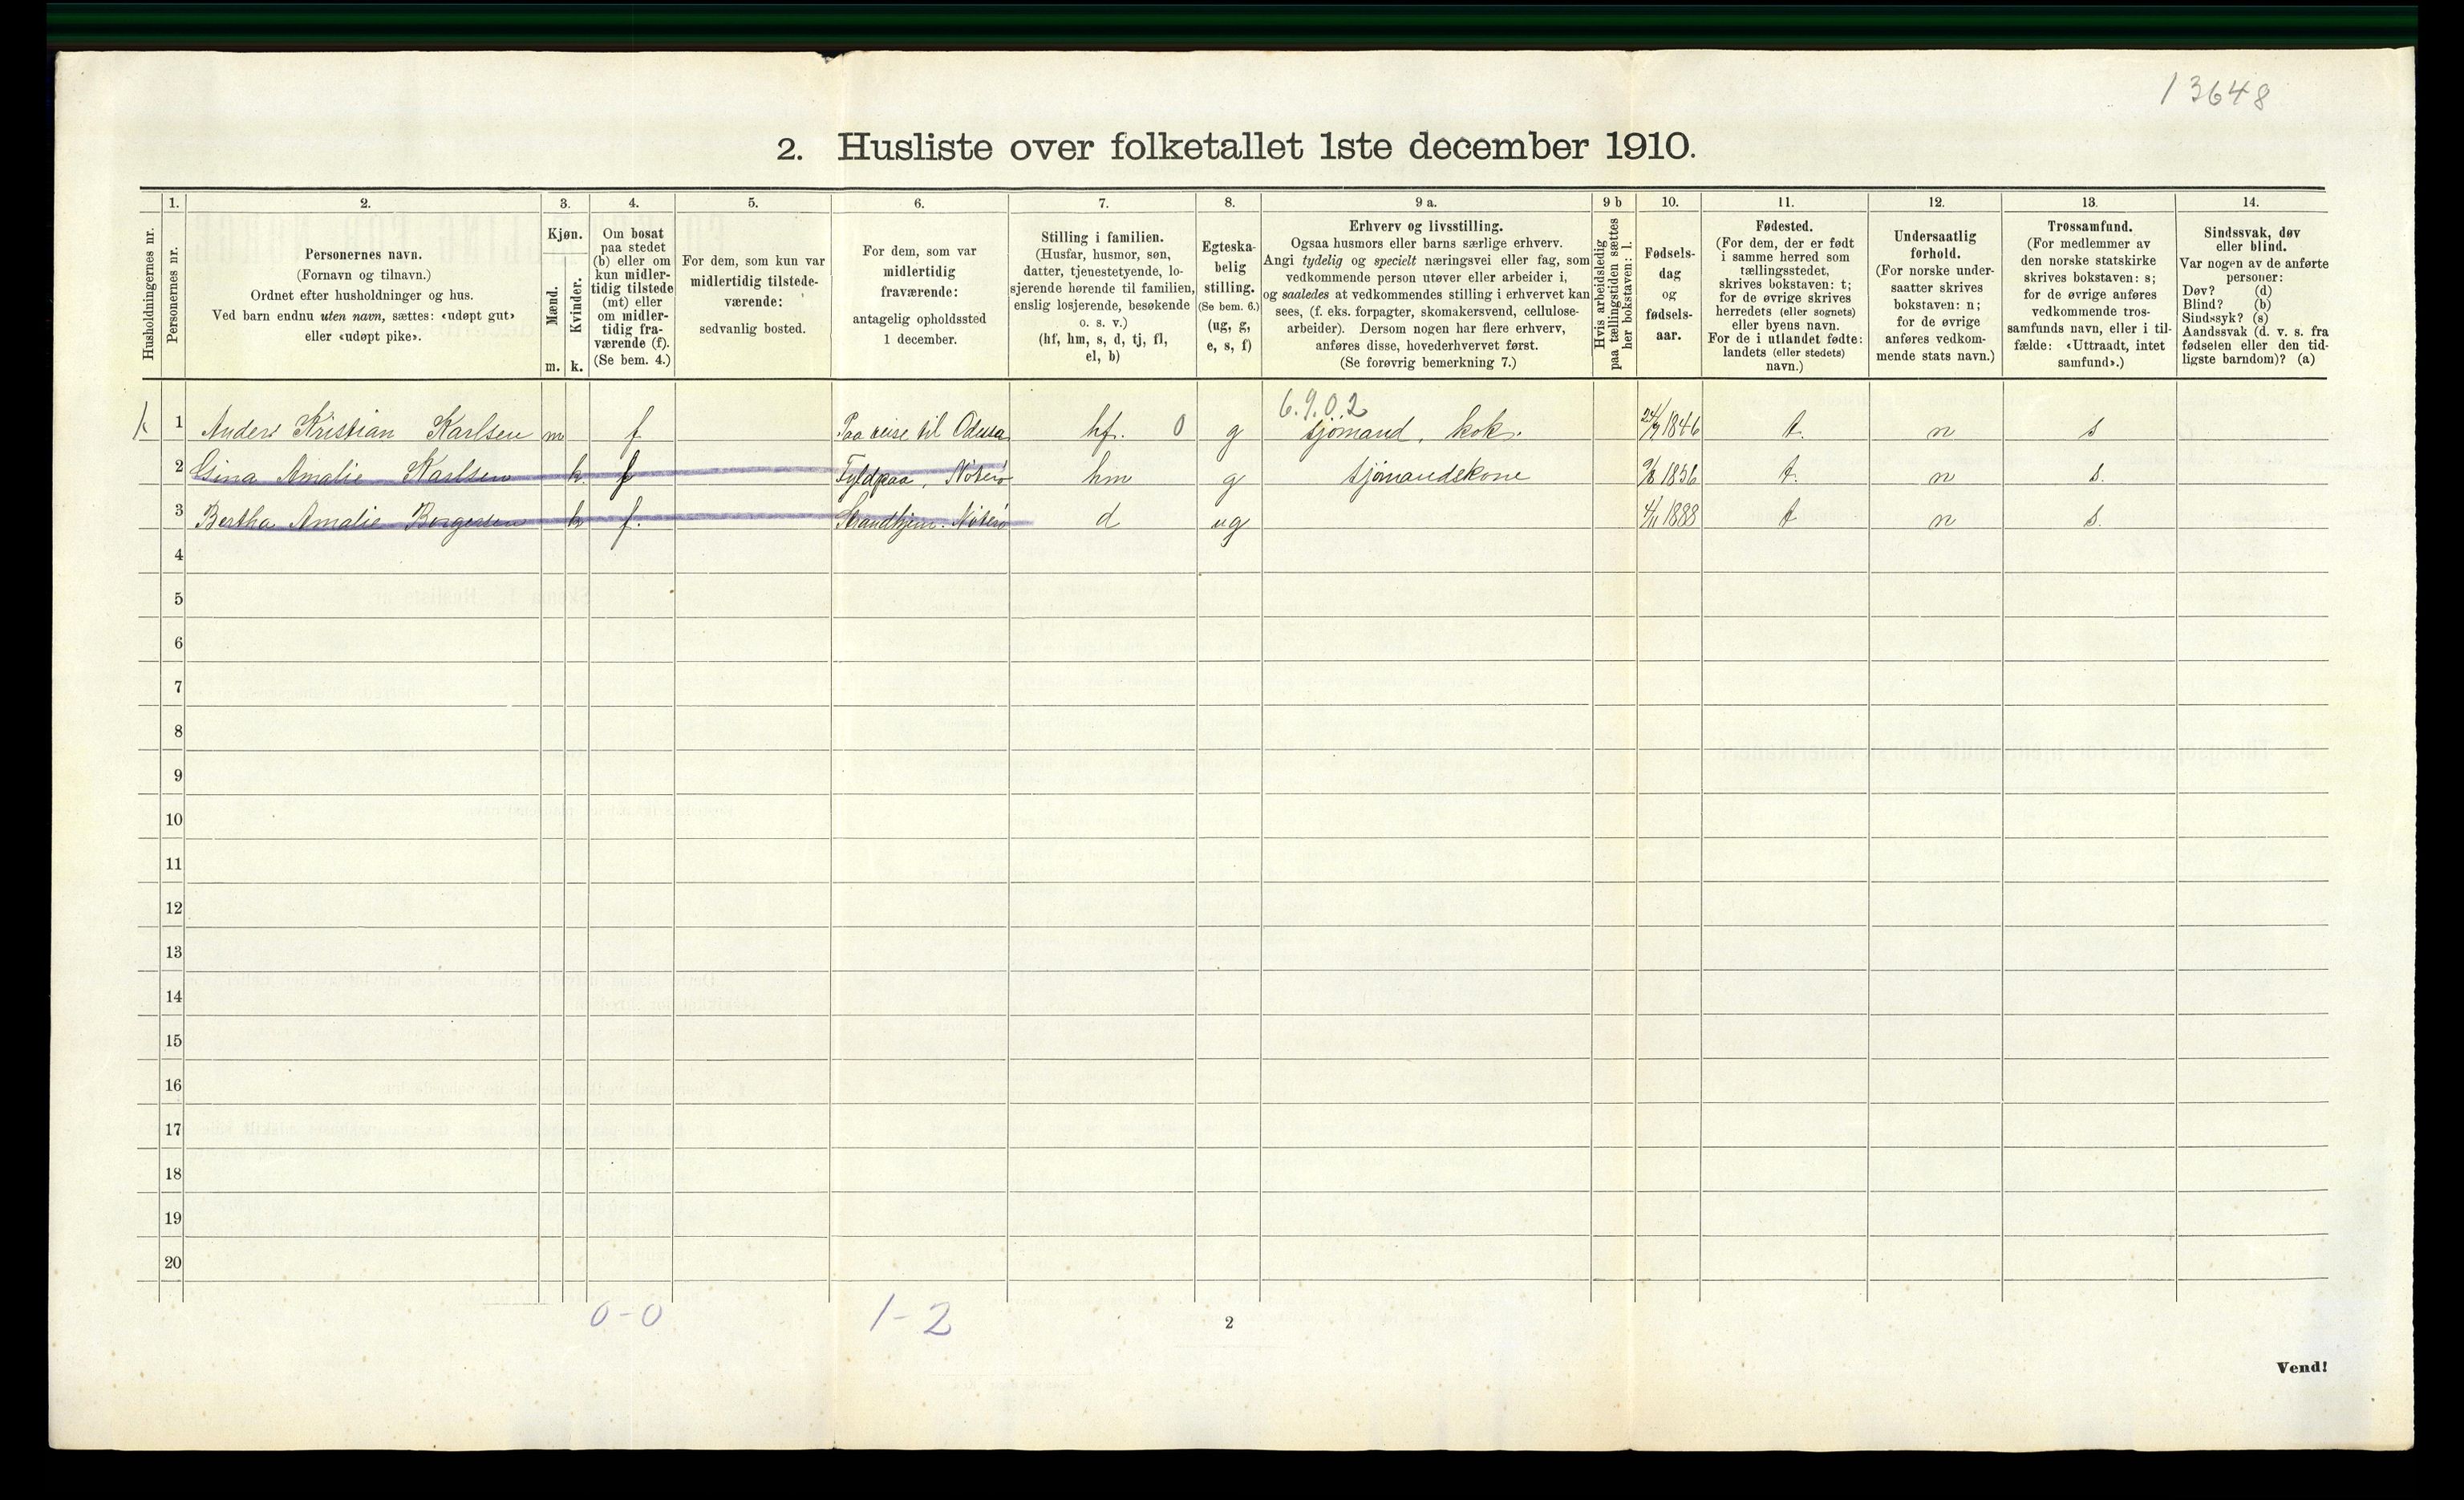 13648
2. Husliste over folketallet 1ste december 1910.
Husholdningernes nr.
1.
Personernes nr.
2.
Personernes navn.
(Fornavn og tilnavn.)
Ordnet efter husholdninger og hus.
Ved barn endnu uten navn, sættes: «udøpt gut»
eller «udøpt pike».
3.
Kjøn.
Mænd.
Kvinder.
m. k.
4.
Om bosat
paa stedet
(b) eller om
kun midler-
tidig tilstede
(mt) eller
om midler-
tidig fra-
værende (f).
(Se bem. 4.)
5.
For dem, som kun var
midlertidig tilstede-
værende:
sedvanlig bosted.
6.
For dem, som var
midlertidig
fraværende:
antagelig opholdssted
1 december.
7.
Stilling i familien.
(Husfar, husmor, søn,
datter, tjenestetyende, lo-
sjerende hørende til familien,
enslig losjerende, besøkende
o. s. v.)
(hf, hm, s, d, tj, fl,
el, b)
8.
Egteska-
belig
stilling.
(Se bem. 6.)
(ug, g,
e, s, f)
9 a.
Erhverv og livsstilling.
Ogsaa husmors eller barns særlige erhverv.
Angi tydelig og specielt næringsvei eller fag, som
vedkommende person utøver eller arbeider i,
og saaledes at vedkommendes stilling i erhvervet kan
sees, (f. eks. forpagter, skomakersvend, cellulose-
arbeider). Dersom nogen har flere erhverv,
anføres disse, hovederhvervet først.
(Se forøvrig bemerkning 7.)
9 b
Hvis arbeidsledig
paa tællingstiden sættes
her bokstaven: l.
10.
Fødsels-
dag
og
fødsels-
aar.
11.
Fødested.
(For dem, der er født
i samme herred som
tællingsstedet,
skrives bokstaven: t;
for de øvrige skrives
herredets (eller sognets)
eller byens navn.
For de i utlandet fødte:
landets (eller stedets)
navn.)
12.
Undersaatlig
forhold.
(For norske under-
saatter skrives
bokstaven: n;
for de øvrige
anføres vedkom-
mende stats navn.)
13.
Trossamfund.
(For medlemmer av
den norske statskirke
skrives bokstaven: s;
for de øvrige anføres
vedkommende tros-
samfunds navn, eller i til-
fælde: «Uttraadt, intet
samfund».)
14.
Sindssvak, døv
eller blind.
Var nogen av de anførte
personer:
Døv? (d)
Blind? (b)
Sindssyk? (s)
Aandssvak (d. v. s. fra
fødselen eller den tid-
ligste barndom)? (a)
6.9.0.2
1 Anders Kristian Karlsen m f Paa reise til Odessa hf. 0 g sjömand, kok. 1846 t. n s
2 Gina Amalie Karlsen k. f Fyldpaa, Nöterö hm g sjömandskone 1856 t. n s.
3 Bertha Amalie Borgersen k f. Strandhjem. Nöterö d ug 4/11 1888 t n s.
4
5
6
7
8
9
10
11
12
13
14
15
16
17
18
19
20
0-0 1-2
2
Vend!